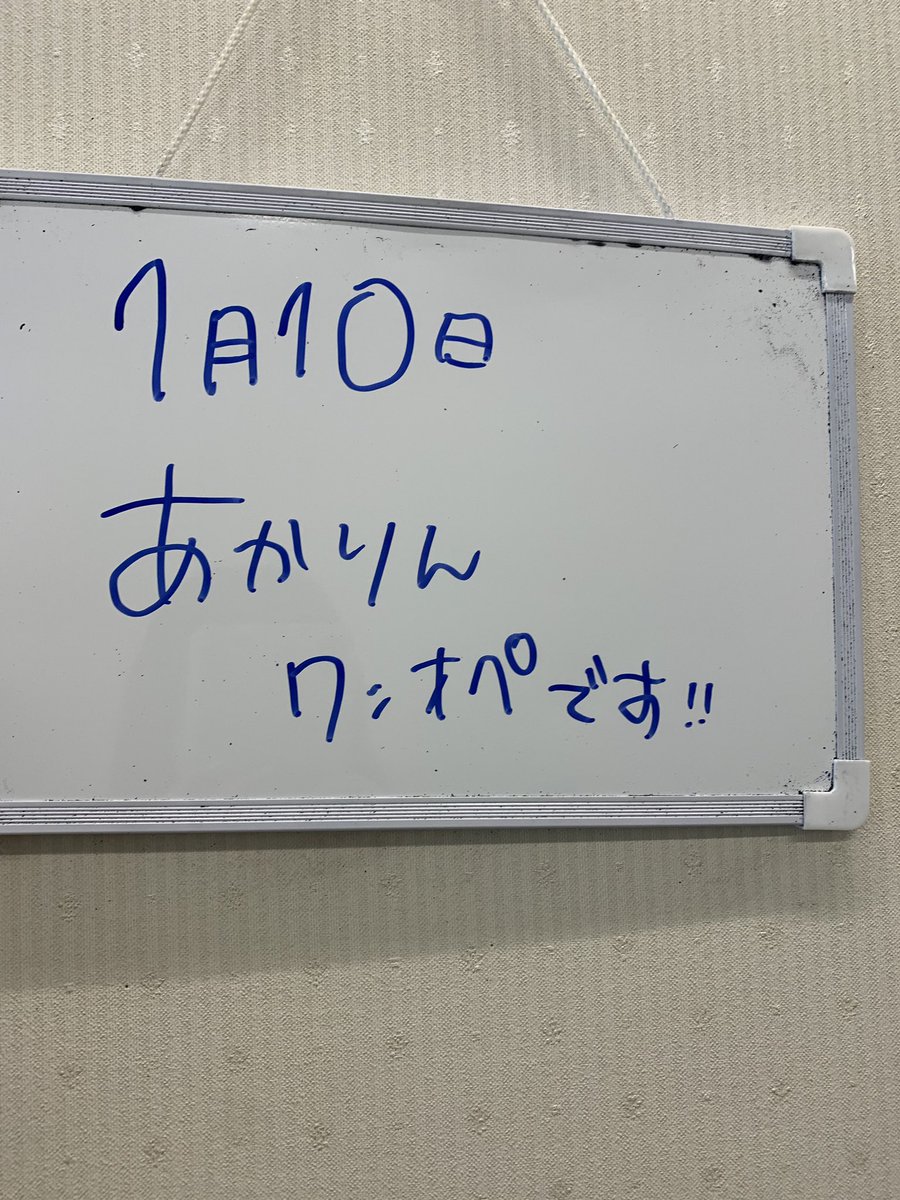 1月10日
あかりん
ワンオペです!!